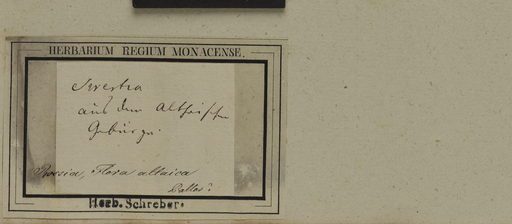 HERBARIUM REGIUM MONACENSE.
Swertia
aus dem Altaischen
Gebürge.
Rossia, Flora altaica
Pallas?
Herb. Schreber.